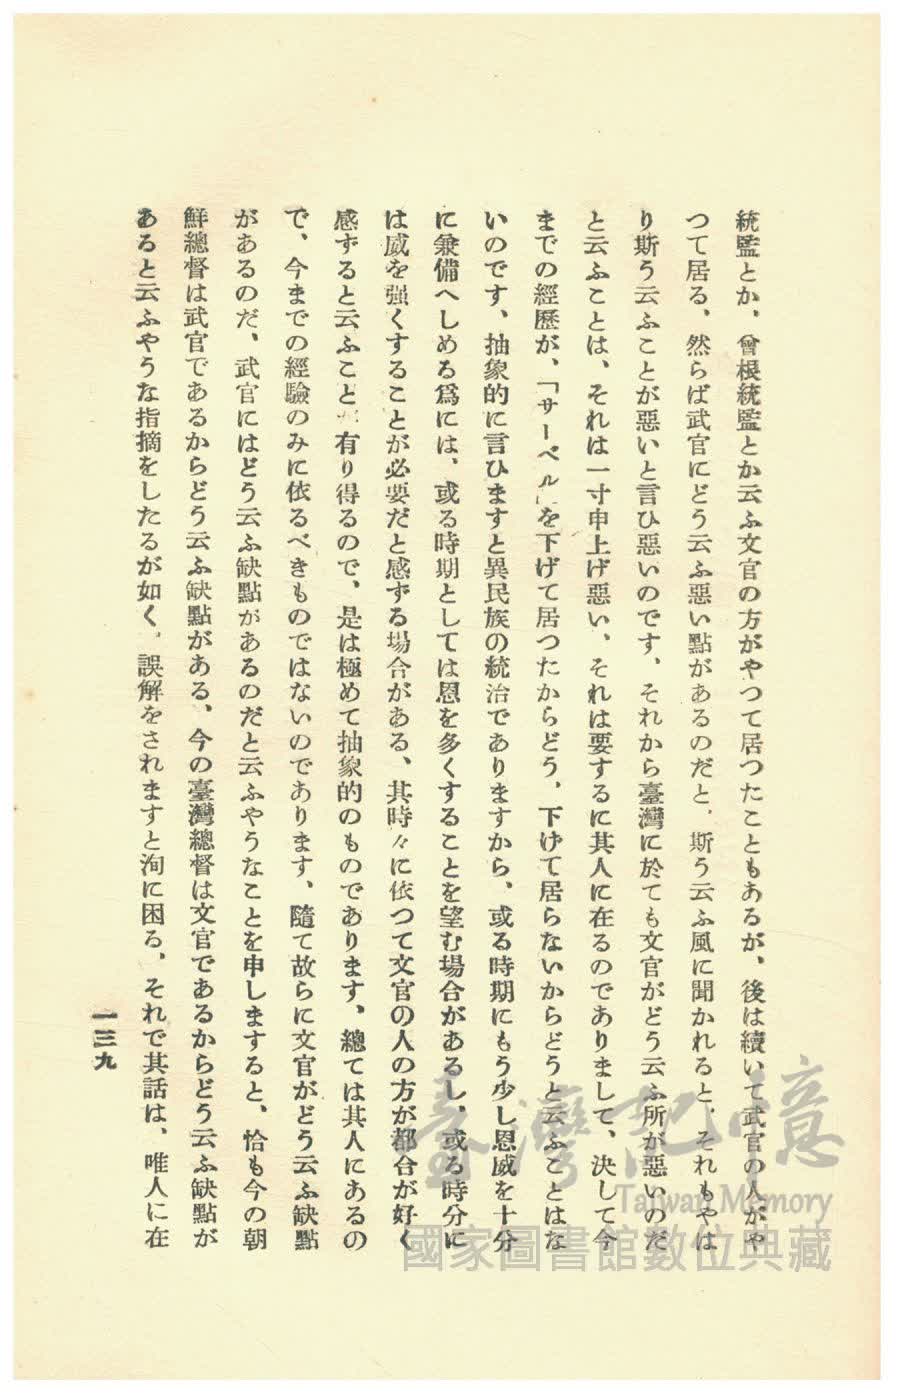 統監とか、曾根統監とか云ふ文官の方がやつて居つたこともあるが、後は續いて武官の人がや
つて居る、然らば武官にどう云ふ惡い點があるのだと、斯う云ふ風に聞かれると、それもやは
り斯う云ふことが惡いと言ひ惡いのです、それから臺灣に於ても文官がどう云ふ所が惡いのだ
と云ふことは、それは一寸申上げ惡い、それは要するに其人に在るのでありまして、決して今
までの經歷が、「サーベル」を下げて居つたからどう、下げて居らないからどうと云ふことはな
いのです、抽象的に言ひますと異民族の統治でありますから、或る時期にもう少し恩威を十分
に兼備へしめる爲には、或る時期としては恩を多くすることを望む場合があるし、或る時分に
は威を强くすることが必要だと感ずる場合がある、其時々に依つて文官の人の方が都合が好く
感ずると云ふこと 有り得るので、是は極めて抽象的のものであります、總ては其人にあるの
で、今までの經驗のみに依るべきものではないのであります、隨て故らに文官がどう云ふ缺點
があるのだ、武官にはどう云ふ缺點があるのだと云ふやうなことを申しますると、恰も今の朝
鮮總督は武官であるからどう云ふ缺點がある、今の臺灣總督は文官であるからどう云ふ缺點が
あると云ふやうな指摘をしたるが如く、誤解をされますと洵に困る、それで其話は、唯人に在
一三九
臺灣記憶
Taiwan Memory
國家圖書館數位典藏